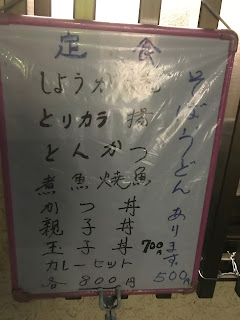 定食
しょうが焼
とりカラ揚
とんかつ
煮魚焼魚
かつ丼
親子丼
玉子丼 700円
カレーセット
各800円
そばうどんあります。
500円